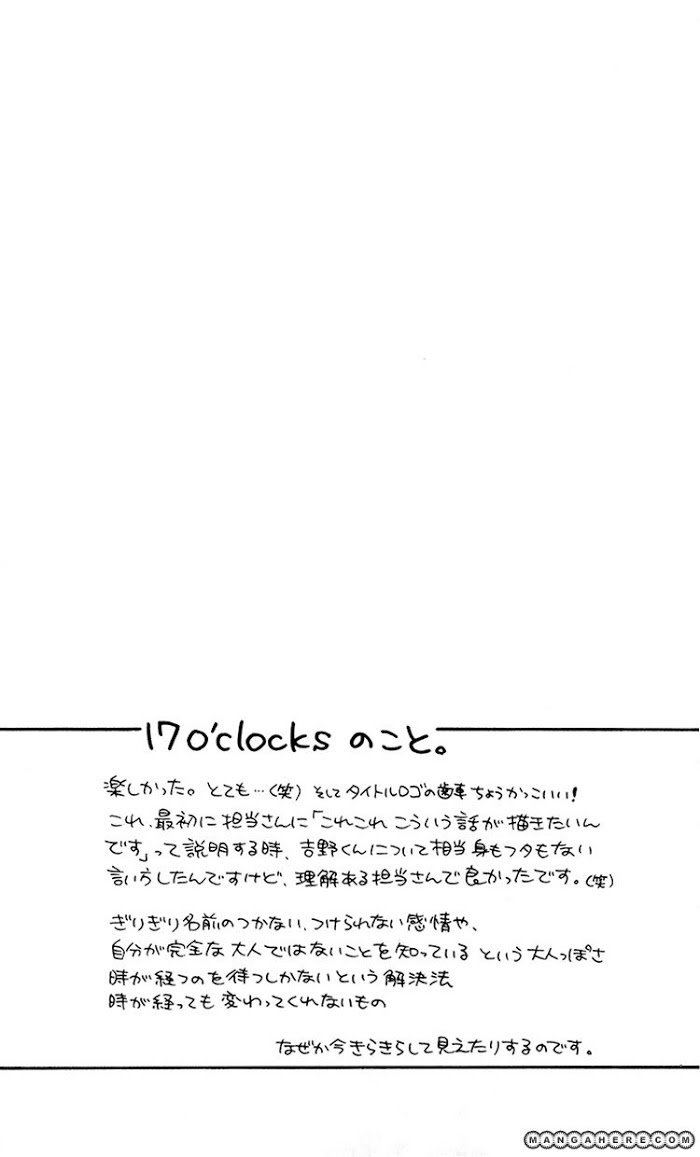 17 o'clocks のこと。
楽しかった。とても…(笑) そしてタイトルロゴの歯車ちょうかっこいい!
これ、最初に担当さんに「これこれこういう話が描きたいん
です」って説明する時、吉野くんについて相当身もフタもない
言い方したんですけど、理解ある担当さんで良かったです。(笑)
ぎりぎり名前のつかない、つけられない感情や、
自分が完全な大人ではないことを知っているという大人っぽさ
時が経つのを待つしかないという解決法
時が経っても変わってくれないもの
なぜか今きらきらして見えたりするのです。
MANGAHERE.COM